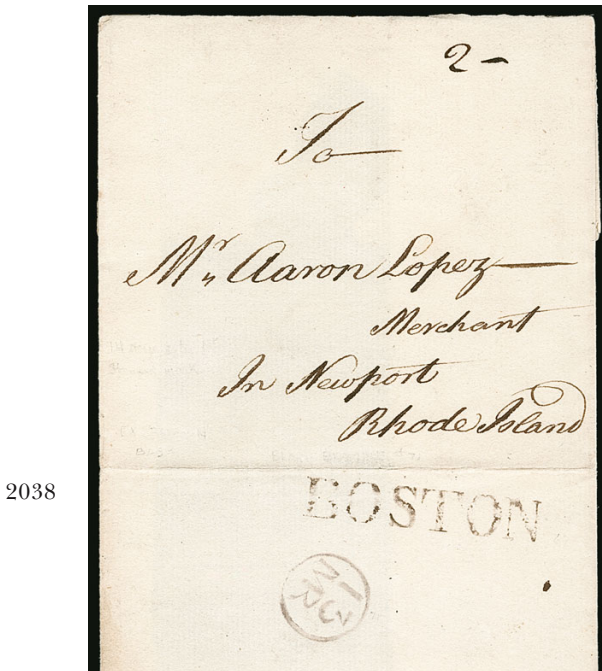 2 -
To
Mr. Aaron Lopez
Merchant
In Newport
Rhode Island
2038
BOSTON
13
MR